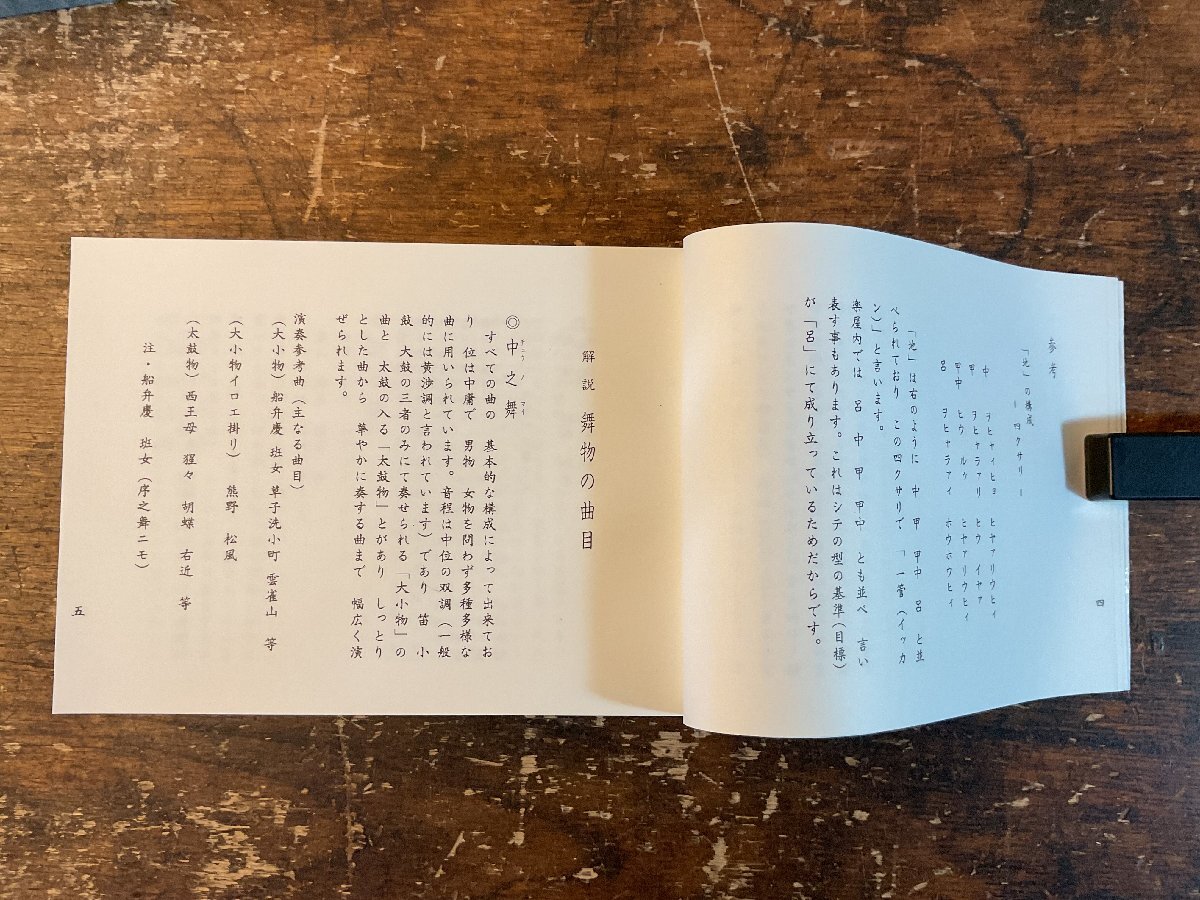 参考
「地」の構成
― 四クサリ ―
中 ヲヒャイヒョ ヒヤァリウヒイ
甲 ヲヒャラァリ ヒウ イヤァ
甲中 ヒウ ルゥ ヒヤァリウヒイ
呂 ヲヒャラアイ ホウホウヒイ
「地」は右のように 中 甲 甲中 呂 と並
べられており この四クサリで、「一管(イッカ
ン)」と言います。
楽屋内では 呂 中 甲 甲中 とも並べ 言い
表す事もあります。これはシテの型の基準(目標)
が「呂」にて成り立っているためだからです。
四
解説 舞物の曲目
◎中之舞
チュウ ノ マイ
すべての曲の 基本的な構成によって出来てお
り 位は中庸で 男物 女物を問わず多種多様な
曲に用いられています。音程は中位の双調(一般
的には黄渉調と言われています)であり 笛 小
鼓 大鼓の三者のみにて奏せられる「大小物」の
曲と 太鼓の入る「太鼓物」とがあり しっとり
とした曲から 華やかに奏する曲まで 幅広く演
ぜられます。
演奏参考曲(主なる曲目)
(大小物)船弁慶 班女 草子洗小町 雲雀山 等
(大小物イロエ掛り) 熊野 松風
(太鼓物)西王母 猩々 胡蝶 右近 等
注・船弁慶 班女(序之舞ニモ)
五